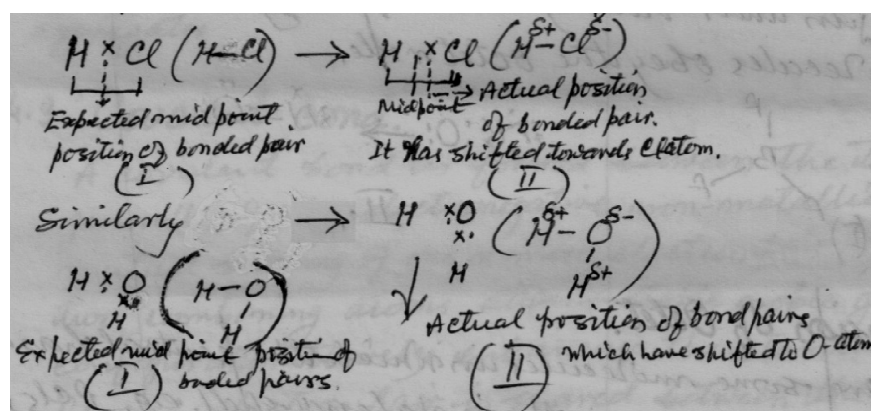 H ×̣ Cl (H-Cl) → H ×̣ Cl (H^δ+-Cl^δ-)
Expected mid point
position of bonded pair
(I)
Midpoint → Actual position
of bonded pair.
It has shifted towards Cl atom.
(II)
Similarly
H ×̣ O
×̣
H
(H-O
H)
Expected mid point position of
bonded pairs.
(I)
→ H ×̣ O (H^δ+-O^δ-
×̣
H
H^δ+)
Actual position of bond pairs
which have shifted to O-atom
(II)